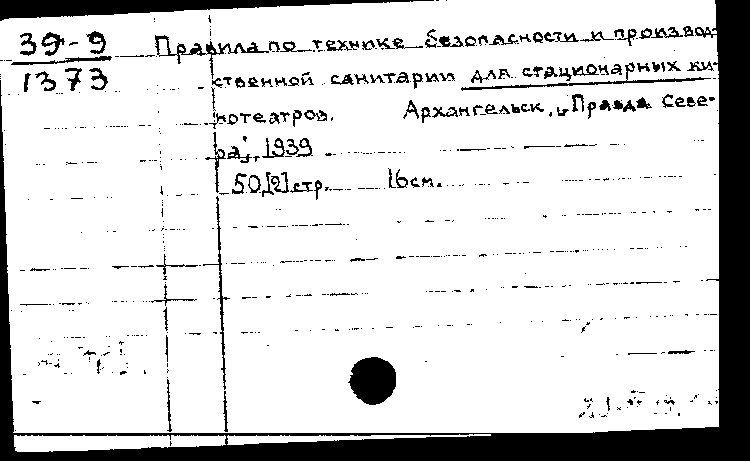 39-9 Правила по технике безопасности и производ-
1373 ственной санитарии для стационарных ки-
нотеатров. Архангельск, „Правда Севе-
ра", 1939
50,[2] стр. 16 см.